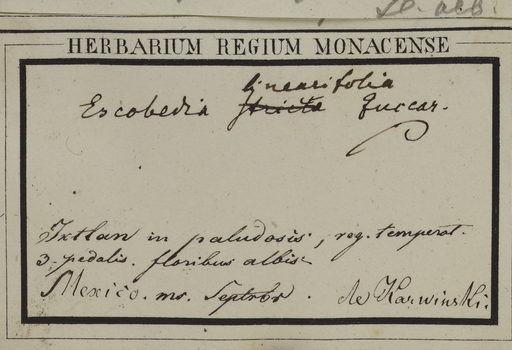 HERBARIUM REGIUM MONACENSE
linearifolia
Escobedia stricta Zuccar.
Ixtlan in paludosis, reg. temperat.
3-pedalis. floribus albis
Mexico. ms. Septbr. de Karwinski.